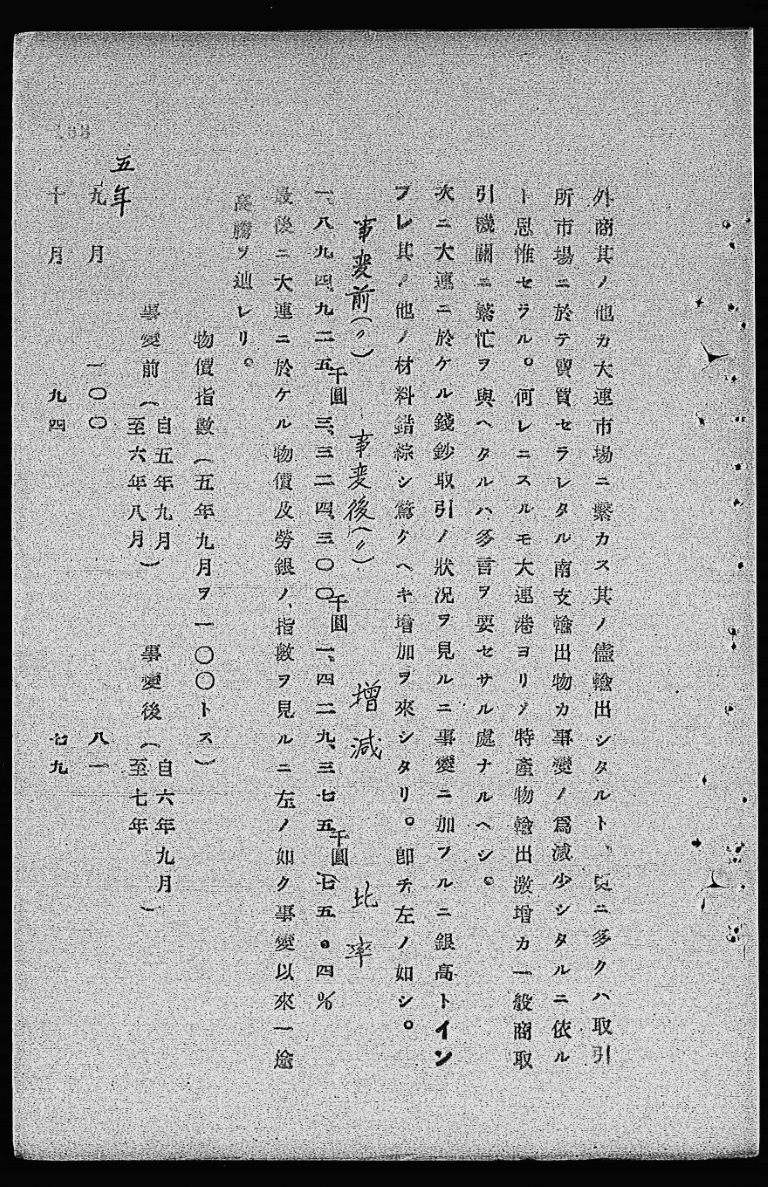 外商其ノ他カ大連市場ニ繫カス其ノ儘輸出シタルト、更ニ多クハ取引
所市場ニ於テ賣買セラレタル南支輸出物カ事變ノ爲減少シタルニ依ル
ト思惟セラル。何レニスルモ大連港ヨリノ特產物輸出激增カ一般商取
引機關ニ繁忙ヲ與ヘタルハ多言ヲ要セサル處ナルヘシ。
次ニ大連ニ於ケル錢鈔取引ノ狀況ヲ見ルニ事變ニ加フルニ銀高トイン
フレ其ノ他ノ材料錯綜シ驚クヘキ增加ヲ來シタリ。卽チ左ノ如シ。
事変前(〃) 事変後(〃) 増減 比率
一、八九四、九二五千圓 三、三二四、三〇〇千圓 一、四二九、三七五千圓 七五。四%
最後ニ大連ニ於ケル物價及勞銀ノ指數ヲ見ルニ左ノ如ク事變以來一途
高騰ヲ辿レリ。
物價指數(五年九月ヲ一〇〇トス)
事變前(自五年九月至六年八月) 事變後(自六年九月至七年)
五年
九月 一〇〇 八一
十月 九四 七九